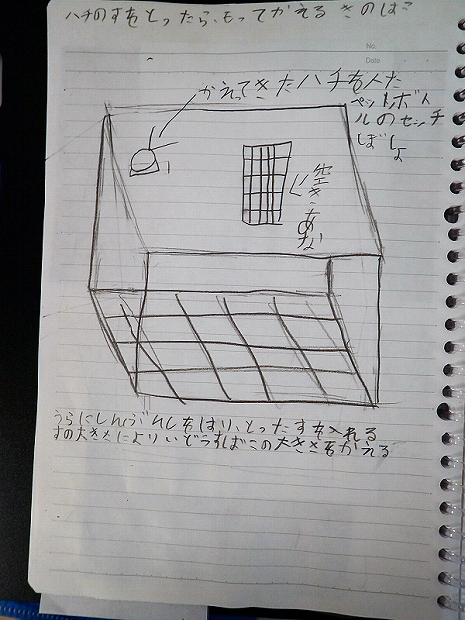 ハチのすをとったら、もってかえる きのはこ
No.
Date
かえってきたハチを入れた
ペットボト
ルのセッチ
ばしょ
空き
あな
うらにしんぶんしをはり、とったすを入れる
すの大きさによりいどうすばこの大きさをかえる